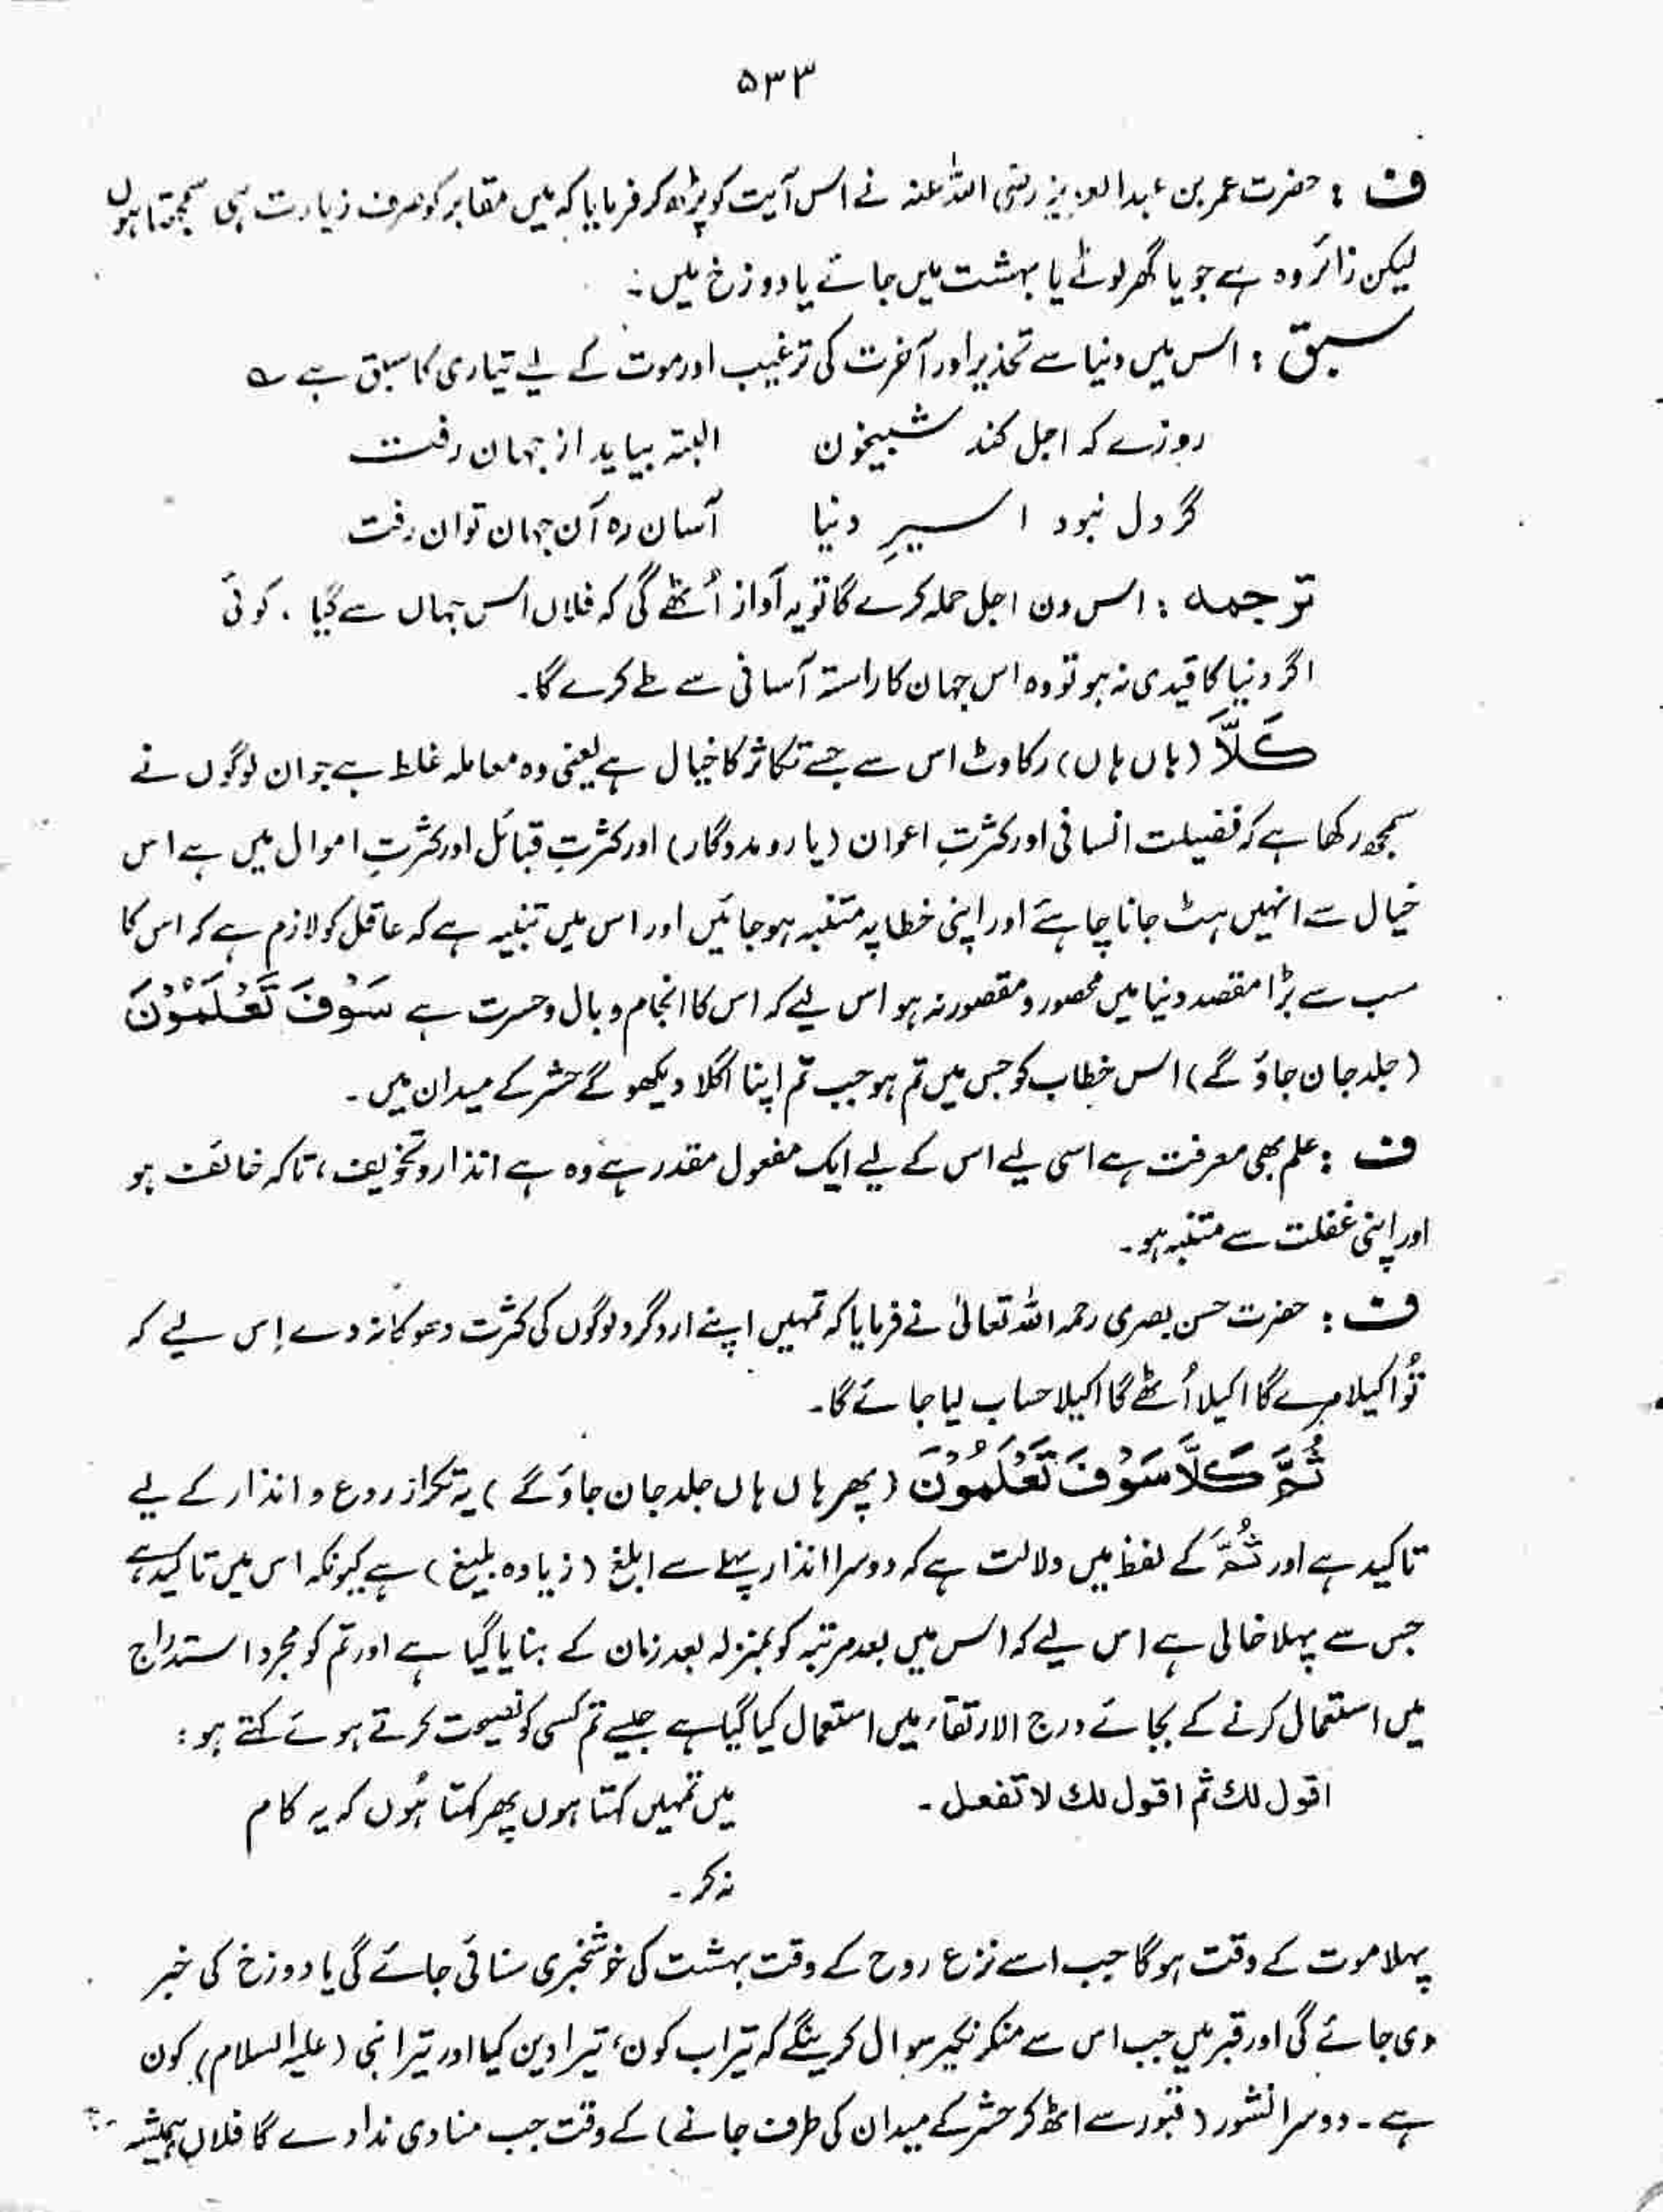 ۵۳۳
ف : حضرت عمر بن عبدالعزیز رضی اللہ عنہ نے اس آیت کو پڑھ کر فرمایا کہ میں مقابر کو صرف زیارت ہی سمجھتا ہوں
لیکن زائر وہ ہے جو یا گھر لوٹے یا بہشت میں جائے یا دوزخ میں :
سبق : اس میں دنیا سے تحذیر اور آخرت کی ترغیب اور موت کے لیے تیاری کا سبق ہے ؎
روزے کہ اجل کند شبیخون البتہ بیاید از جہان رفت
گر دل نبود اسیرِ دنیا آسان رہ آن جہان توان رفت
ترجمہ : اس دن اجل حملہ کرے گا تو یہ آواز اُٹھے گی کہ فلاں اس جہاں سے گیا ۔ کوئی
اگر دنیا کا قیدی نہ ہو تو وہ اس جہان کا راستہ آسانی سے طے کرے گا۔
كَلَّا (ہاں ہاں) رکاوٹ اس سے جسے تکاثر کا خیال ہے یعنی وہ معاملہ غلط ہے جو ان لوگوں نے
سمجھ رکھا ہے کہ فضیلت انسانی اور کثرتِ اعوان (یار و مددگار) اور کثرتِ قبائل اور کثرتِ اموال میں ہے اس
خیال سے انہیں ہٹ جانا چاہئے اور اپنی خطا پہ متنبہ ہو جائیں اور اس میں تنبیہ ہے کہ عاقل کو لازم ہے کہ اس کا
سب سے بڑا مقصد دنیا میں محصور و مقصور نہ ہو اس لیے کہ اس کا انجام وبال و حسرت ہے سَوْفَ تَعْلَمُوْنَ
(جلد جان جاؤ گے) اس خطاب کو جس میں تم ہو جب تم اپنا اگلا دیکھو گے حشر کے میدان میں ۔
ف : علم بھی معرفت ہے اسی لیے اس کے لیے ایک مفعول مقدر ہے وہ ہے انذار و تخویف ، تاکہ خائف ہو
اور اپنی غفلت سے متنبہ ہو۔
ف : حضرت حسن بصری رحمہ اللہ تعالیٰ نے فرمایا کہ تمہیں اپنے اردگرد لوگوں کی کثرت دھوکا نہ دے اِس لیے کہ
تُو اکیلا مرے گا اکیلا اُٹھے گا اکیلا حساب لیا جائے گا۔
ثُمَّ كَلَّا سَوْفَ تَعْلَمُوْنَ (پھر ہاں ہاں جلد جان جاؤ گے ) یہ تکرار ردع و انذار کے لیے
تاکید ہے اور ثُمَّ کے لفظ میں دلالت ہے کہ دوسرا انذار پہلے سے ابلغ (زیادہ بلیغ) ہے کیونکہ اس میں تاکید ہے
جس سے پہلا خالی ہے اس لیے کہ اس میں بعد مرتبہ کو بمنزلہ بعد زمان کے بنایا گیا ہے اور تم کو مجرد استدراج
میں استعمال کرنے کے بجائے درج الارتقاء میں استعمال کیا گیا ہے جیسے تم کسی کو نصیحت کرتے ہوئے کہتے ہو :
اقول لك ثم اقول لك لا تفعل ۔ میں تمہیں کہتا ہوں پھر کہتا ہُوں کہ یہ کام
نہ کر ۔
پہلا موت کے وقت ہوگا جب اسے نزع روح کے وقت بہشت کی خوشخبری سنائی جائے گی یا دوزخ کی خبر
دی جائے گی اور قبر میں جب اس سے منکر نکیر سوال کرینگے کہ تیرا رب کون، تیرا دین کیا اور تیرا نبی (علیہ السلام) کون
ہے ۔ دوسرا نشور (قبور سے اٹھ کر حشر کے میدان کی طرف جانے) کے وقت جب منادی ندا دے گا فلاں ہمیشہ